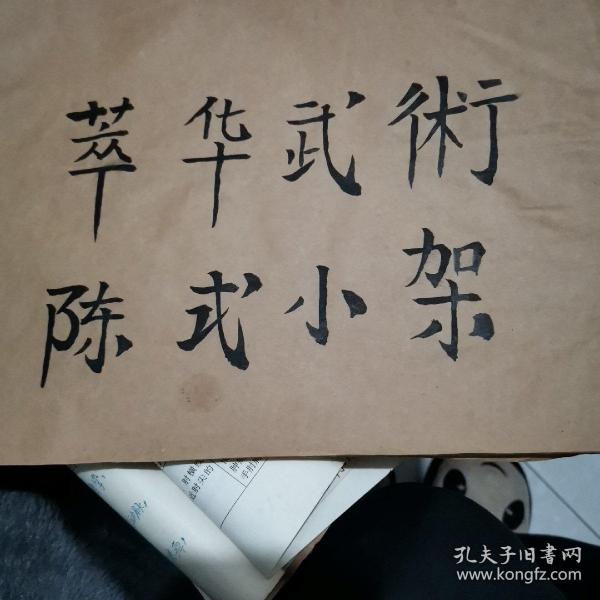 萃华武術
陈式小架
孔夫子旧書网
www.kongfz.com